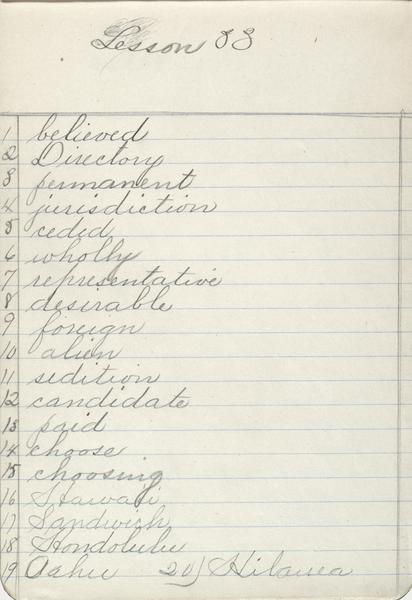 Lesson 33
1 believed
2 Directory
3 permanent
4 jurisdiction
5 ceded
6 wholly
7 representative
8 desirable
9 foreign
10 alien
11 sedition
12 candidate
13 paid
14 choose
15 choosing
16 Hawaii
17 Sandwich
18 Hondolulu
19 Oahu 20) Kilauea